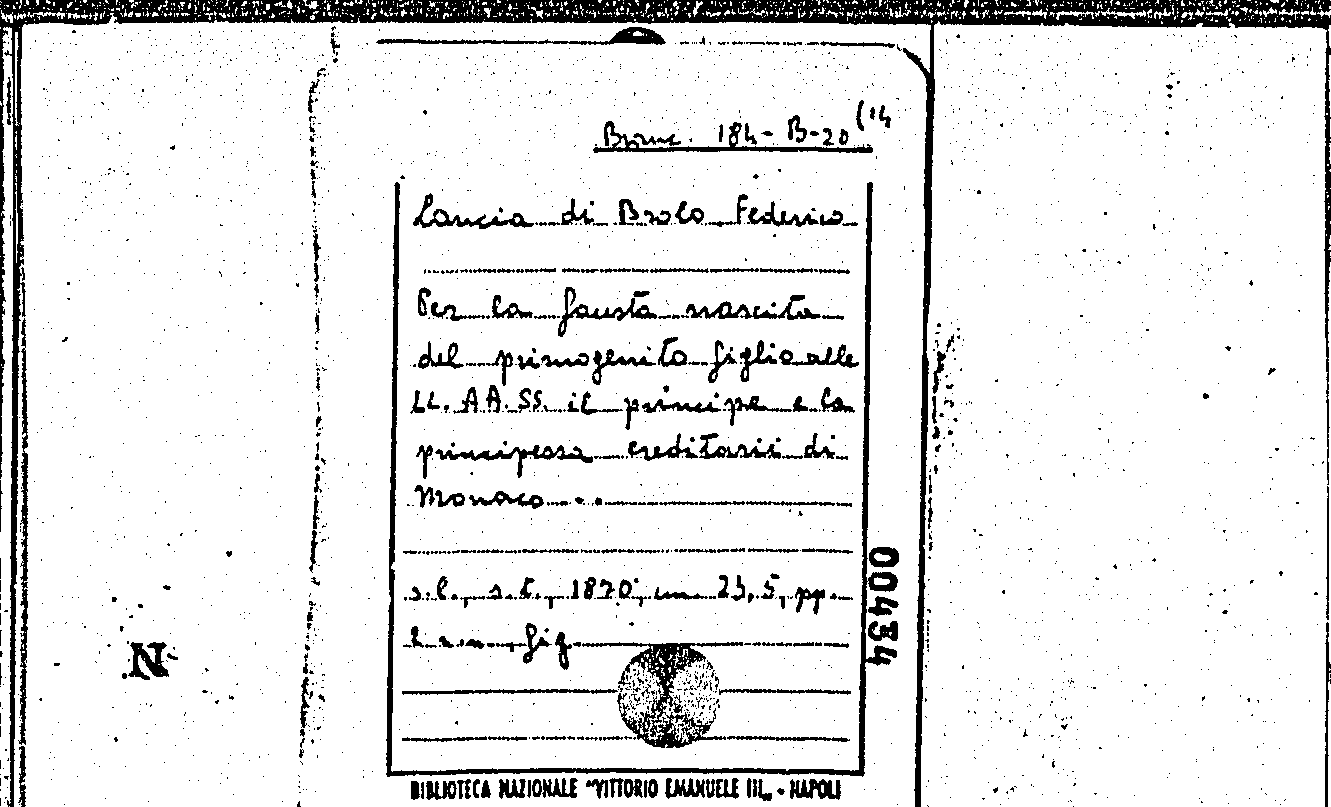 Branc. 184- B-20 (14
Lancia di Brolo Federico
Per la fausta nascita
del primogenito figlio alle
LL. AA. SS. il principe e la
principessa ereditarii di
Monaco...
s.l., s.t., 1870, cm. 23,5, pp.
2 n.n., fig.
00434
N
BIBLIOTECA NAZIONALE "VITTORIO EMANUELE III„ - NAPOLI